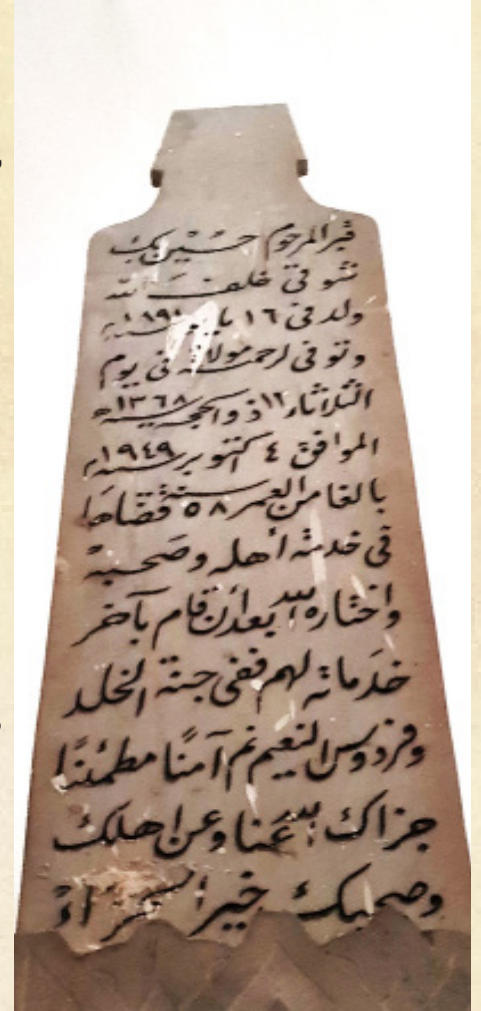 قبر المرحوم حسين بك
شوقى خلف الله
ولد فى ١٦ ١٨٩١م
وتوفى لرحمة مولاه فى يوم
الثلاثاء ١٢ ذو الحجة سنة ١٣٦٨ه
الموافق ٤ اكتوبر سنة ١٩٤٩م
بالغا من العمر ٥٨ سنة قضاها
فى خدمة أهله وصحبه
واختاره الله بعد أن قام بآخر
خدماته لهم ففى جنة الخلد
وفردوس النعيم نم آمنًا مطمئنًا
جزاك الله عنا وعن اهلك
وصحبك خير الجزاء